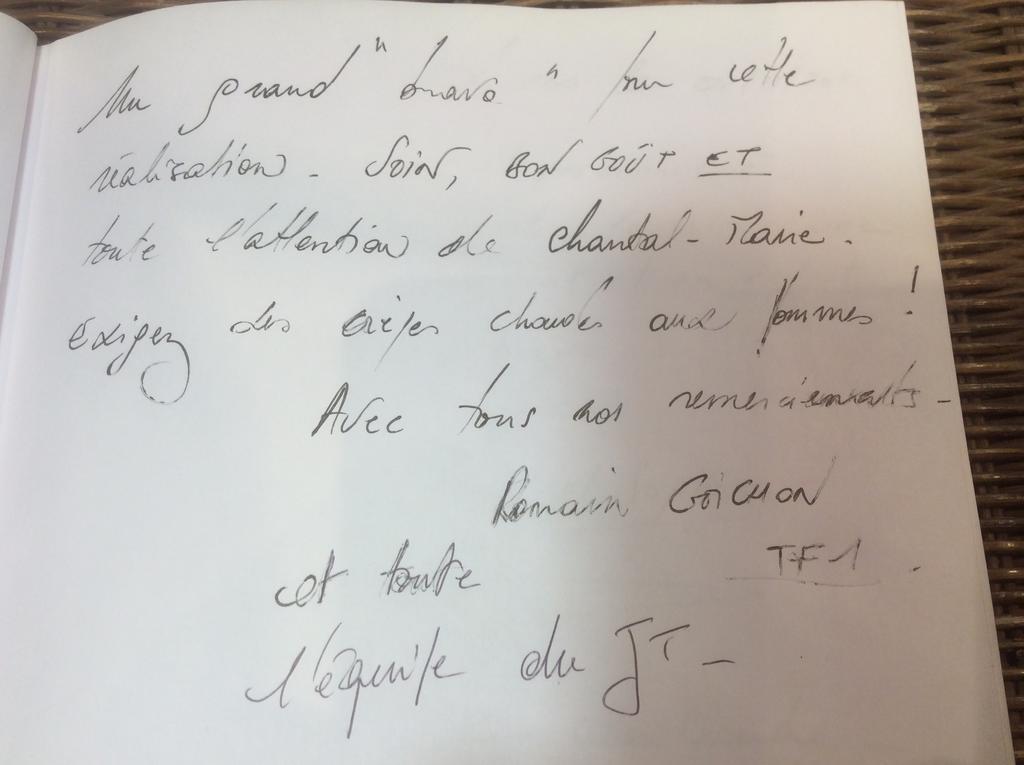 Un grand "bravo" pour cette
réalisation. Soin, BON GOÛT ET
toute l'attention de Chantal-Marie.
Exigez des crêpes chaudes aux pommes !
Avec tous nos remerciements -
Romain GOICHON
TF1.
et toute
l'équipe du JT -